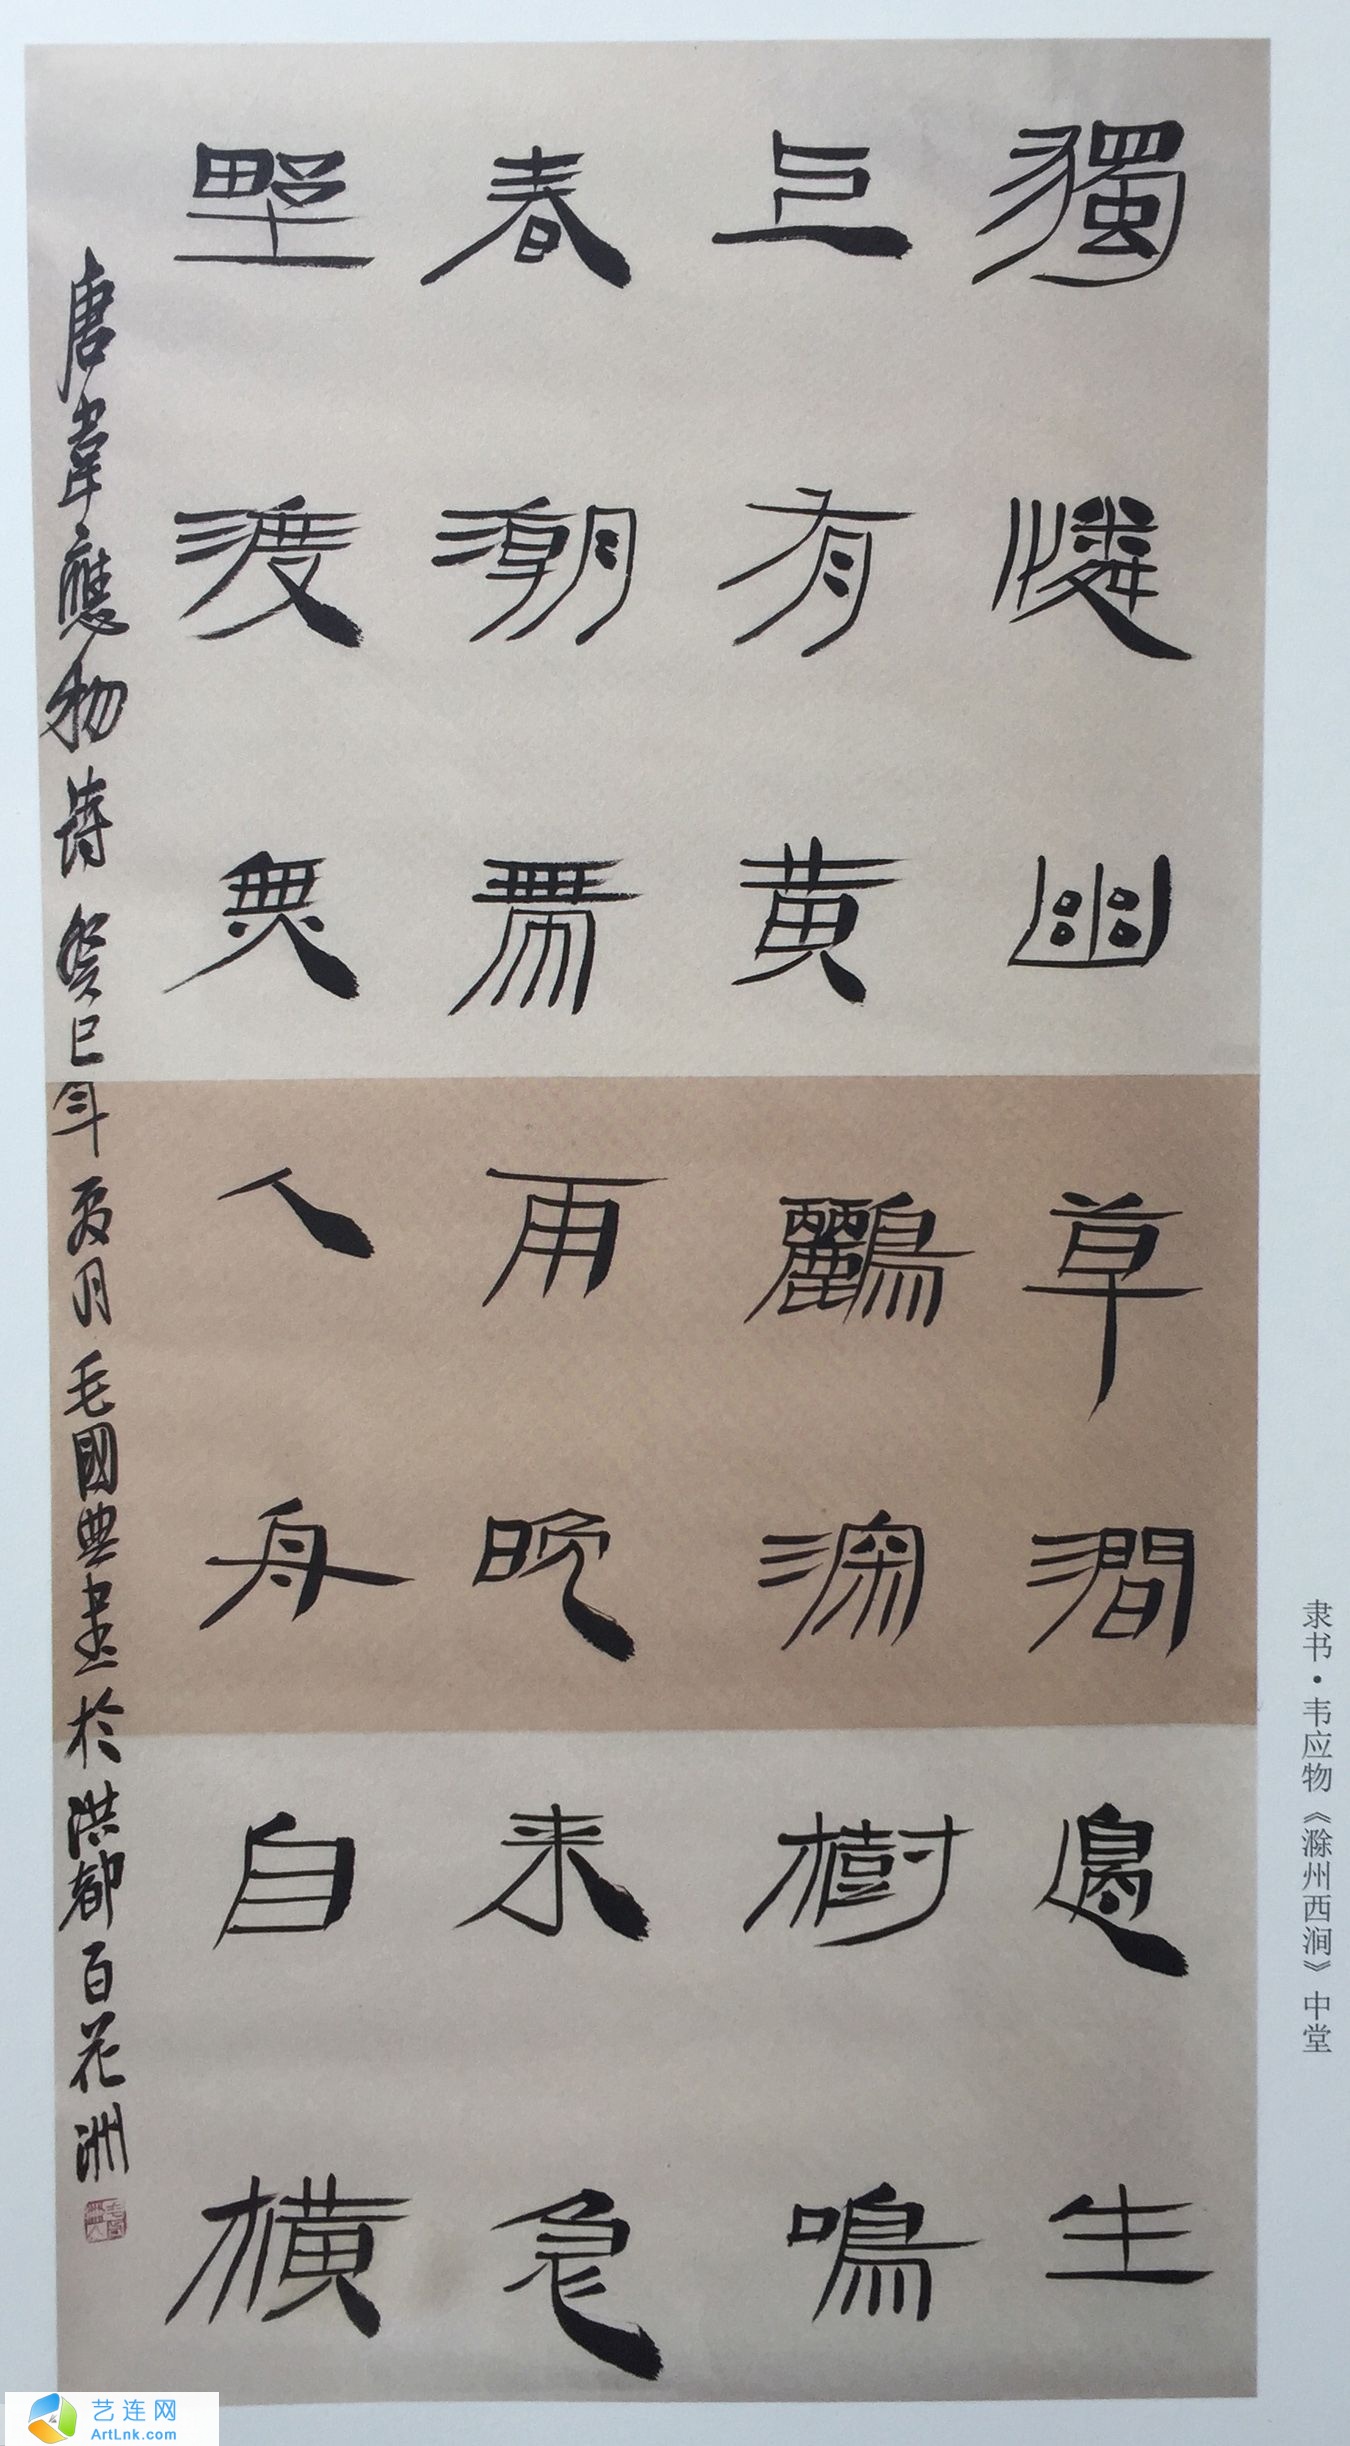 獨憐幽草澗邊生
上有黄鸝深樹鳴
春潮帶雨晚来急
野渡無人舟自橫
唐韋應物詩癸巳年夏月毛國典書於洪都百花洲
隶书·韦应物《滁州西涧》中堂
艺连网
ArtLnk.com